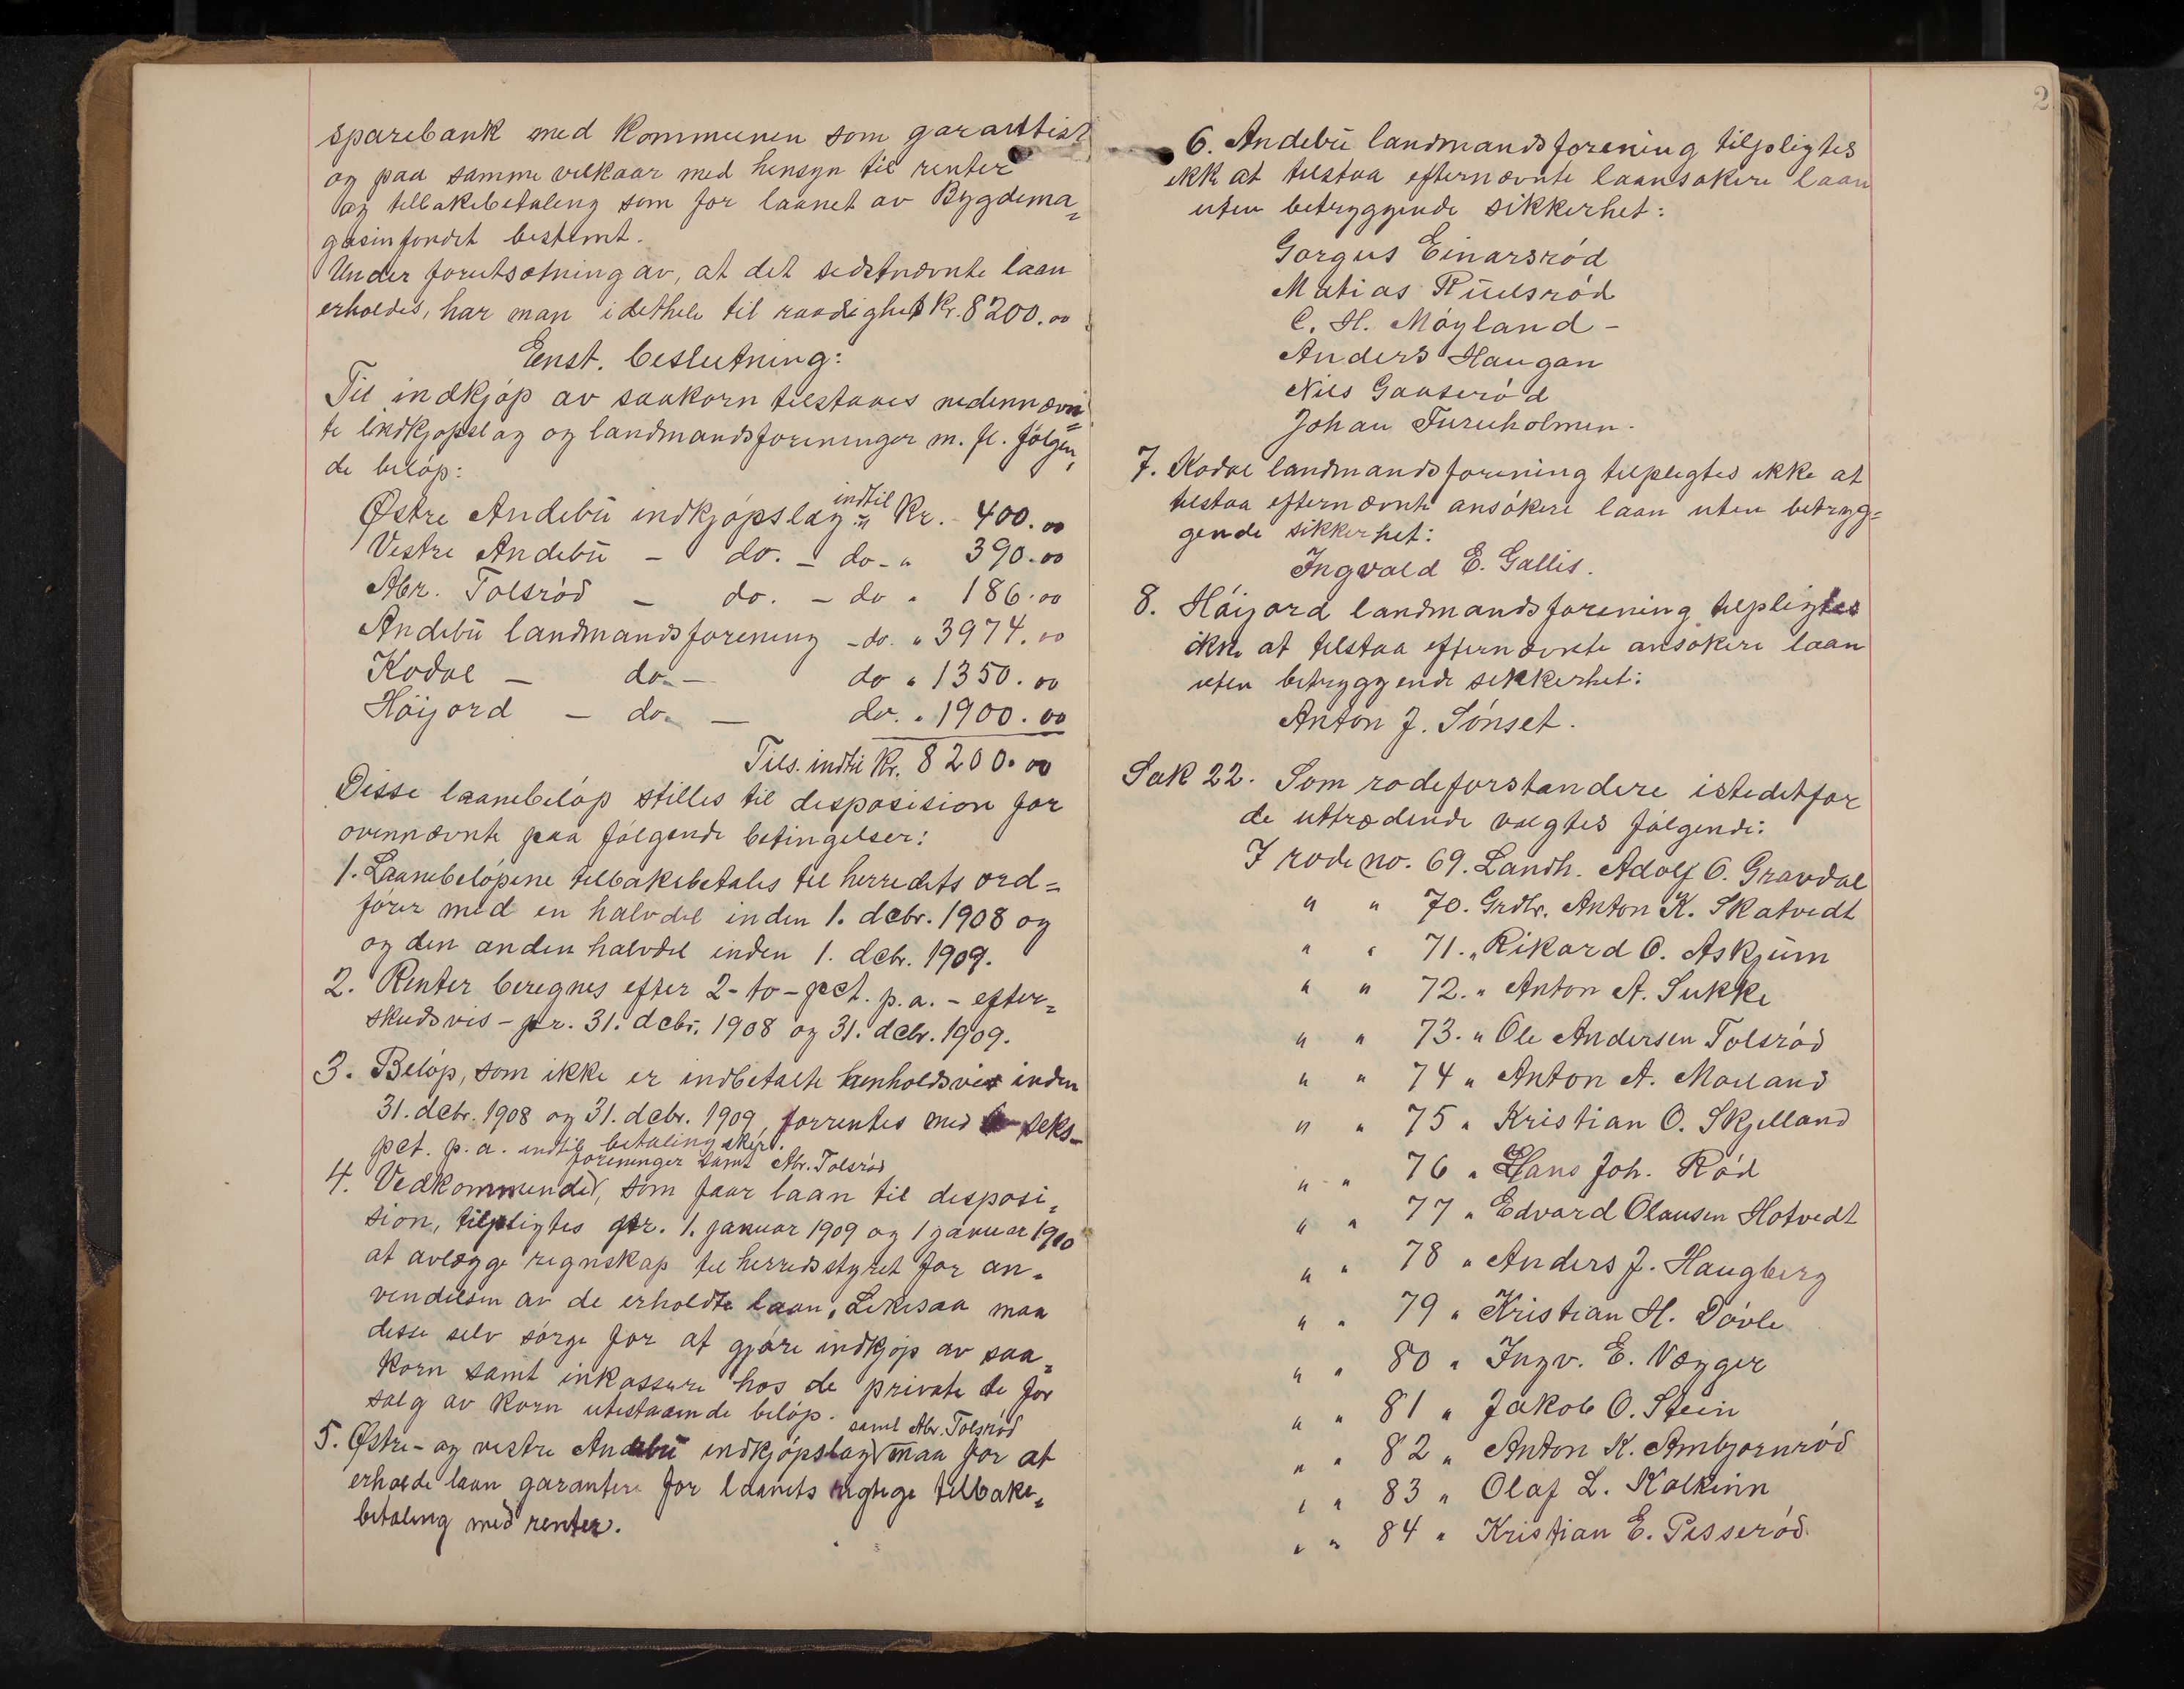 sparebank med kommunen som garantist
og paa samme vilkaar med hensyn til renter
og tilbakebetaling som for laanet av Bygdema=
gasinfondet bestemt.
Under forutsætning av, at det sidstnævnte laan
erholdes, har man i dethele til raadighet Kr. 8200.00
Enst. beslutning:
Til indkjøp av saakorn tilstaaes nedennævn=
te indkjøpslag og landmandsforeninger m. fl. følgen=
de beløp:
Østre Andebu indkjøpslag indtil Kr. 400.00
Vestre Andebu - do. - do - " 390.00
Abr. Tolsrød - do. - do " 186.00
Andebu landmandsforening - do. " 3974.00
Kodal - do. - do " 1350.00
Höijord - do. - do. " 1900.00
Tils. indtil Kr. 8200.00
Disse laanebeløp stilles til disposision for
ovennævnte paa følgende betingelser:
1. Laanebeløpene tilbakebetales til herredets ord=
fører med en halvdel inden 1. debr. 1908 og
og den anden halvdel inden 1. debr. 1909.
2. Renter beregnes efter 2 - to - pct. p. a. - efter=
skudsvis - pr. 31. debr. 1908 og 31. debr. 1909.
3. Beløp, som ikke er indbetalte henholdsvis inden
31. debr. 1908 og 31. debr. 1909, forrentes med seks-
pct. p. a. indtil betaling sker.
foreninger samt Abr. Tolsrød
4. Vedkommende, som faar laan til disposi=
sion, tilpligtes pr. 1. januar 1909 og 1 januar 1910
at avlægge regnskap til herredsstyret for an=
vendelsen av de erholdte laan. Likesaa maa
disse selv sørge for at gjøre indkjøp av saa=
korn samt inkassere hos de private de for
salg av korn utestaaende beløp.
samt Abr. Tolsrød
5. Østre - og vestre Andebu indkjøpslag maa for at
erholde laan garantere for laanets rigtige tilbake=
betaling med renter.
2
6. Andebu landmandsforening tilpligtes
ikke at tilstaa efternævnte laansøkere laan
uten betryggende sikkerhet:
Gorgus Einarsrød
Matias Ruelsrød
C. H. Möyland -
Anders Haugan
Nils Gaaserød
Johan Furuholmen.
7. Kodal landmandsforening tilpligtes ikke at
tilstaa efternævnte ansøkere laan uten betryg=
gende sikkerhet:
Ingvald E. Gallis.
8. Höijord landmandsforening tilpligtes
ikke at tilstaa efternævnte ansøkere laan
uten betryggende sikkerhet:
Anton J. Sönset.
Sak 22. Som rodeforstandere istedetfor
de uttrædende valgtes følgende:
I rode no. 69. Landh. Adolf O. Gravdal
" " 70. Grdbr. Anton K. Skatvedt
" " 71. " Rikard O. Askjum
" " 72. " Anton A. Sukke
" " 73. " Ole Andersen Tolsrød
" " 74 " Anton A. Moland
" " 75 " Kristian O. Skjelland
" " 76 " Hans Joh. Rød
" " 77 " Edvard Olausen Hotvedt
" " 78 " Anders J. Haugberg
" " 79 " Kristian H. Døvle
" " 80 " Ingv. E. Nægger
" " 81 " Jakob O. Stein
" " 82 " Anton K. Ambjørnrød
" " 83 " Olaf L. Kolkinn
" " 84 " Kristian E. Pisserød